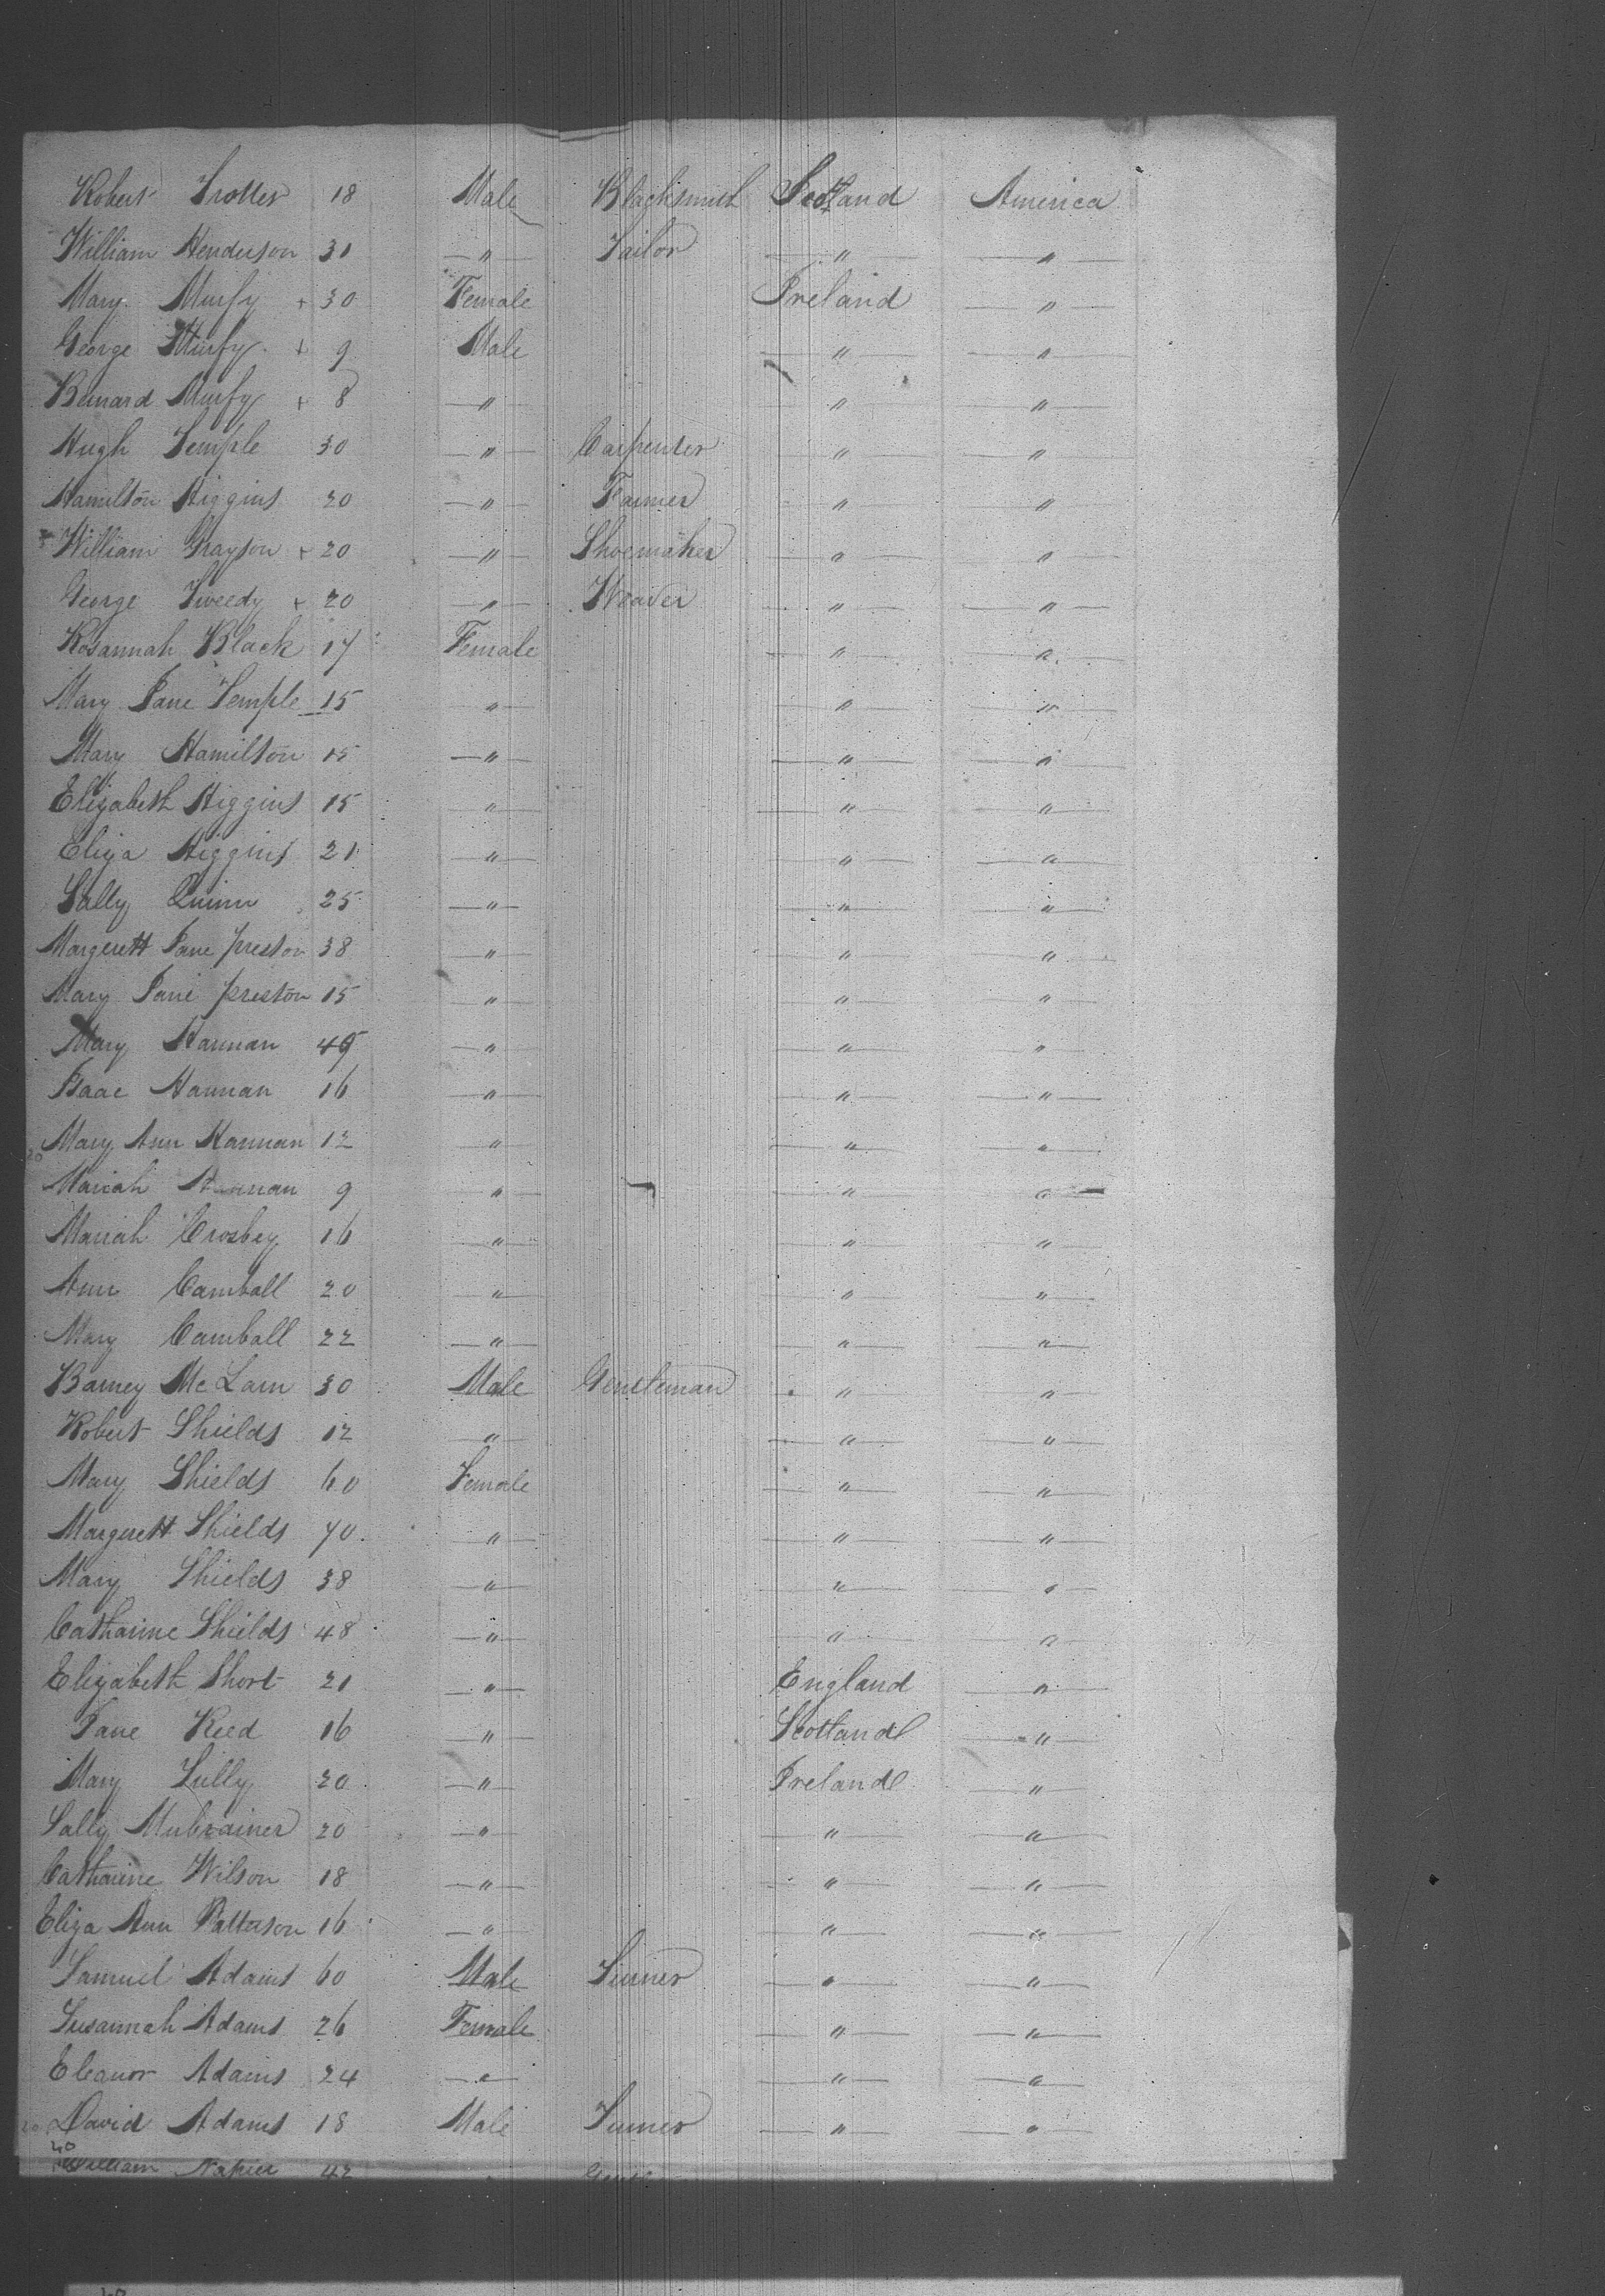 Robert Trotter 18 Male Blacksmith Scotland America
William Henderson 31 " Tailor " "
Mary Murfy + 30 Female Ireland "
George Murfy + 9 Male " "
Bernard Murfy + 8 " " "
Hugh Temple 30 " Carpenter " "
Hamilton Higgins 20 " Farmer " "
William Grayson + 20 " Shoemaker " "
George Tweedy + 20 " Weaver " "
Rosannah Black 17 Female " "
Mary Jane Temple 15 " " "
Mary Hamilton 15 " " "
Elizabeth Higgins 15 " " "
Eliza Higgins 21 " " "
Sally Quinn 25 " " "
Margerett Jane Preston 38 " " "
Mary Jane Preston 15 " " "
Mary Hannan " " "
Isaac Hannan 16 " " "
20 Mary Ann Hannan 12 " " "
Mariah Hannan 9 " " "
Mariah Crosbey 16 " " "
Ann Camball 20 " " "
Mary Camball 22 " " "
Barney McLarn 30 Male Gentleman " "
Robert Shields 12 " " "
Mary Shields 60 Female " "
Margerett Shields 70 " " "
Mary Shields 38 " " "
Catharine Shields 48 " " "
Elizabeth Short 21 " England "
Jane Reed 16 " Scotland "
Mary 20 " Ireland "
Sally 20 " " "
Catharine Wilson 18 " " "
Eliza Ann Patterson 16 " " "
Samuel Adams 60 Male " "
Susannah Adams 26 Female " "
Eleanor Adams 24 " " "
David Adams 18 Male " "
40
William Napier 42 "